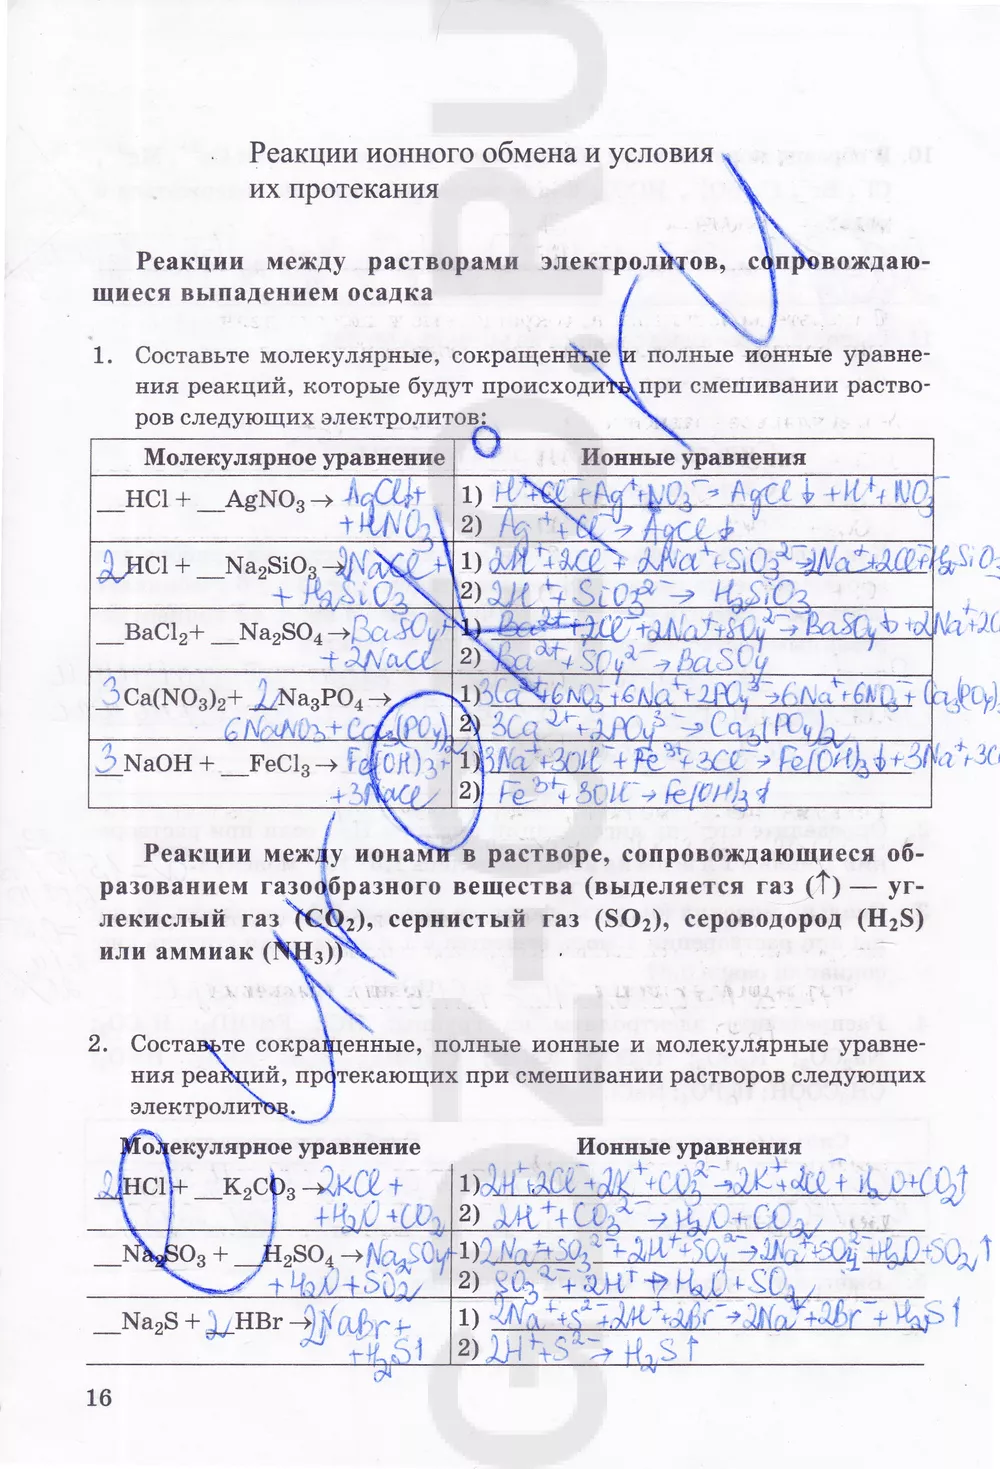 Реакции ионного обмена и условия
их протекания
Реакции между растворами электролитов, сопровождаю-
щиеся выпадением осадка
1. Составьте молекулярные, сокращенные и полные ионные уравне-
ния реакций, которые будут происходить при смешивании раство-
ров следующих электролитов:
Молекулярное уравнение Ионные уравнения
__HCl + __AgNO₃ → AgCl↓+ 1) H⁺+Cl⁻+Ag⁺+NO₃⁻→AgCl↓+H⁺+NO₃⁻
+HNO₃ 2) Ag⁺+Cl⁻→AgCl↓
2HCl + __Na₂SiO₃→2NaCl+ 1) 2H⁺+2Cl⁻+2Na⁺+SiO₃²⁻→2Na⁺+2Cl⁻+H₂SiO₃
+H₂SiO₃ 2) 2H⁺+SiO₃²⁻→H₂SiO₃
__BaCl₂+ __Na₂SO₄→BaSO₄+ 1) Ba²⁺+2Cl⁻+2Na⁺+SO₄²⁻→BaSO₄↓+2Na⁺+2Cl
+2NaCl 2) Ba²⁺+SO₄²⁻→BaSO₄
3Ca(NO₃)₂+ 2Na₃PO₄→ 1) 3Ca²⁺+6NO₃⁻+6Na⁺+2PO₄³⁻→6Na⁺+6NO₃⁻+Ca₃(PO₄)₂
6NaNO₃+Ca₃(PO₄)₂ 2) 3Ca²⁺+2PO₄³⁻→Ca₃(PO₄)₂
3NaOH + __FeCl₃→Fe(OH)₃+ 1) 3Na⁺+3OH⁻+Fe³⁺+3Cl⁻→Fe(OH)₃↓+3Na⁺+3Cl
+3NaCl 2) Fe³⁺+3OH⁻→Fe(OH)₃↓
Реакции между ионами в растворе, сопровождающиеся об-
разованием газообразного вещества (выделяется газ (↑) — уг-
лекислый газ (CO₂), сернистый газ (SO₂), сероводород (H₂S)
или аммиак (NH₃))
2. Составьте сокращенные, полные ионные и молекулярные уравне-
ния реакций, протекающих при смешивании растворов следующих
электролитов.
Молекулярное уравнение Ионные уравнения
2HCl + __K₂CO₃→2KCl+ 1) 2H⁺+2Cl⁻+2K⁺+CO₃²⁻→2K⁺+2Cl⁻+H₂O+CO₂↑
+H₂O+CO₂ 2) 2H⁺+CO₃²⁻→H₂O+CO₂
__Na₂SO₃ + __H₂SO₄→Na₂SO₄+ 1) 2Na⁺+SO₃²⁻+2H⁺+SO₄²⁻→2Na⁺+SO₄²⁻+H₂O+SO₂↑
+H₂O+SO₂ 2) SO₃²⁻+2H⁺→H₂O+SO₂
__Na₂S + 2HBr→2NaBr+ 1) 2Na⁺+S²⁻+2H⁺+2Br⁻→2Na⁺+2Br⁻+H₂S↑
+H₂S↑ 2) 2H⁺+S²⁻→H₂S↑
16
GDZ-GDZ.RU